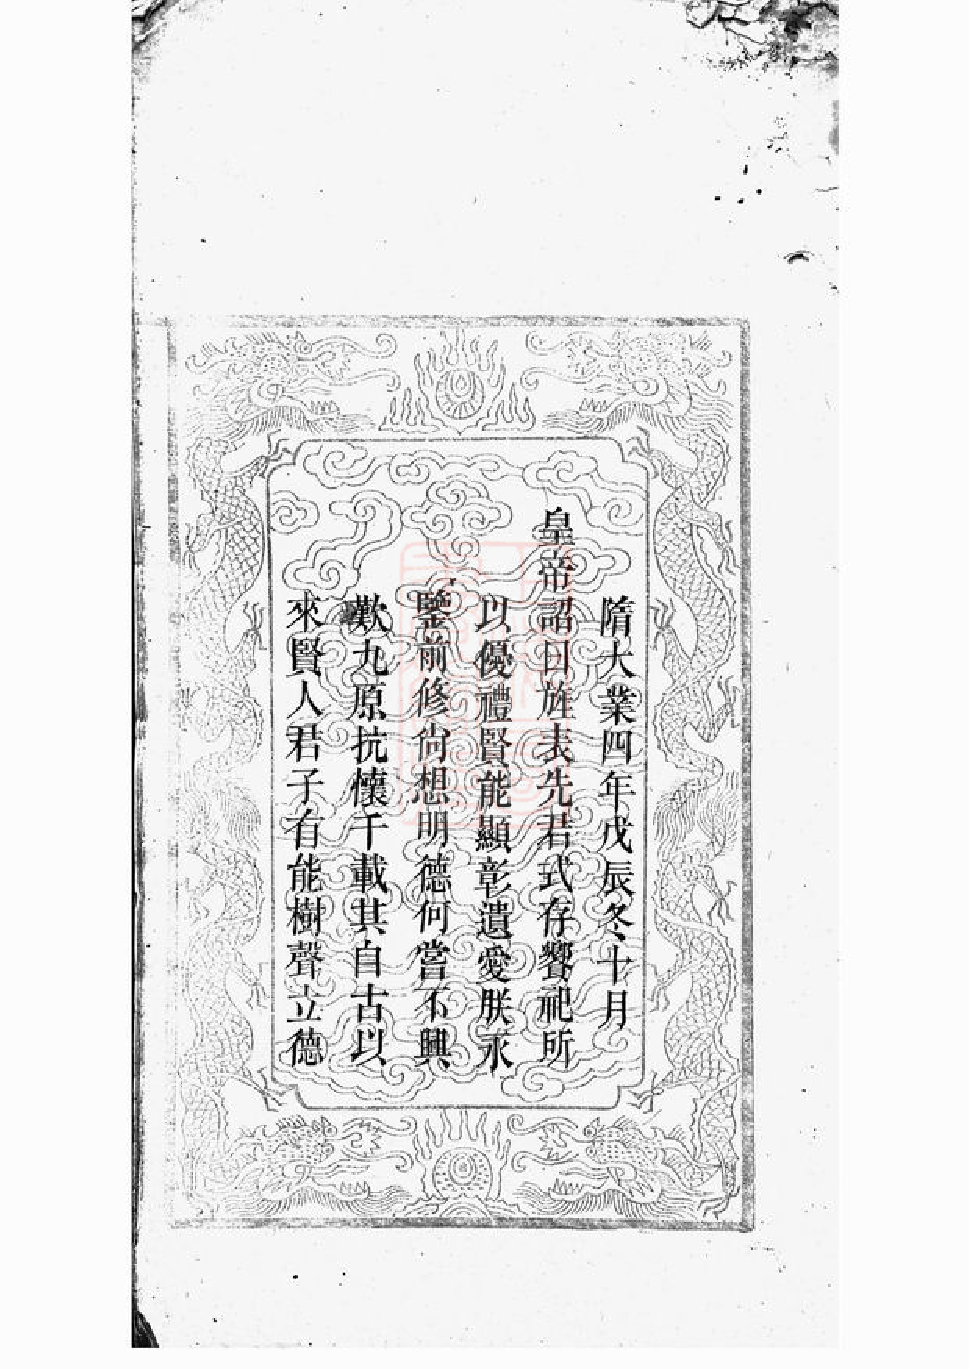 隋大業四年戊辰冬十月
皇帝詔曰旌表先君式存饗祀所
以優禮賢能顯彰遺愛朕永
鑒前修尙想明德何嘗不興
歎九原抗懷千載其自古以
來賢人君子有能樹聲立德